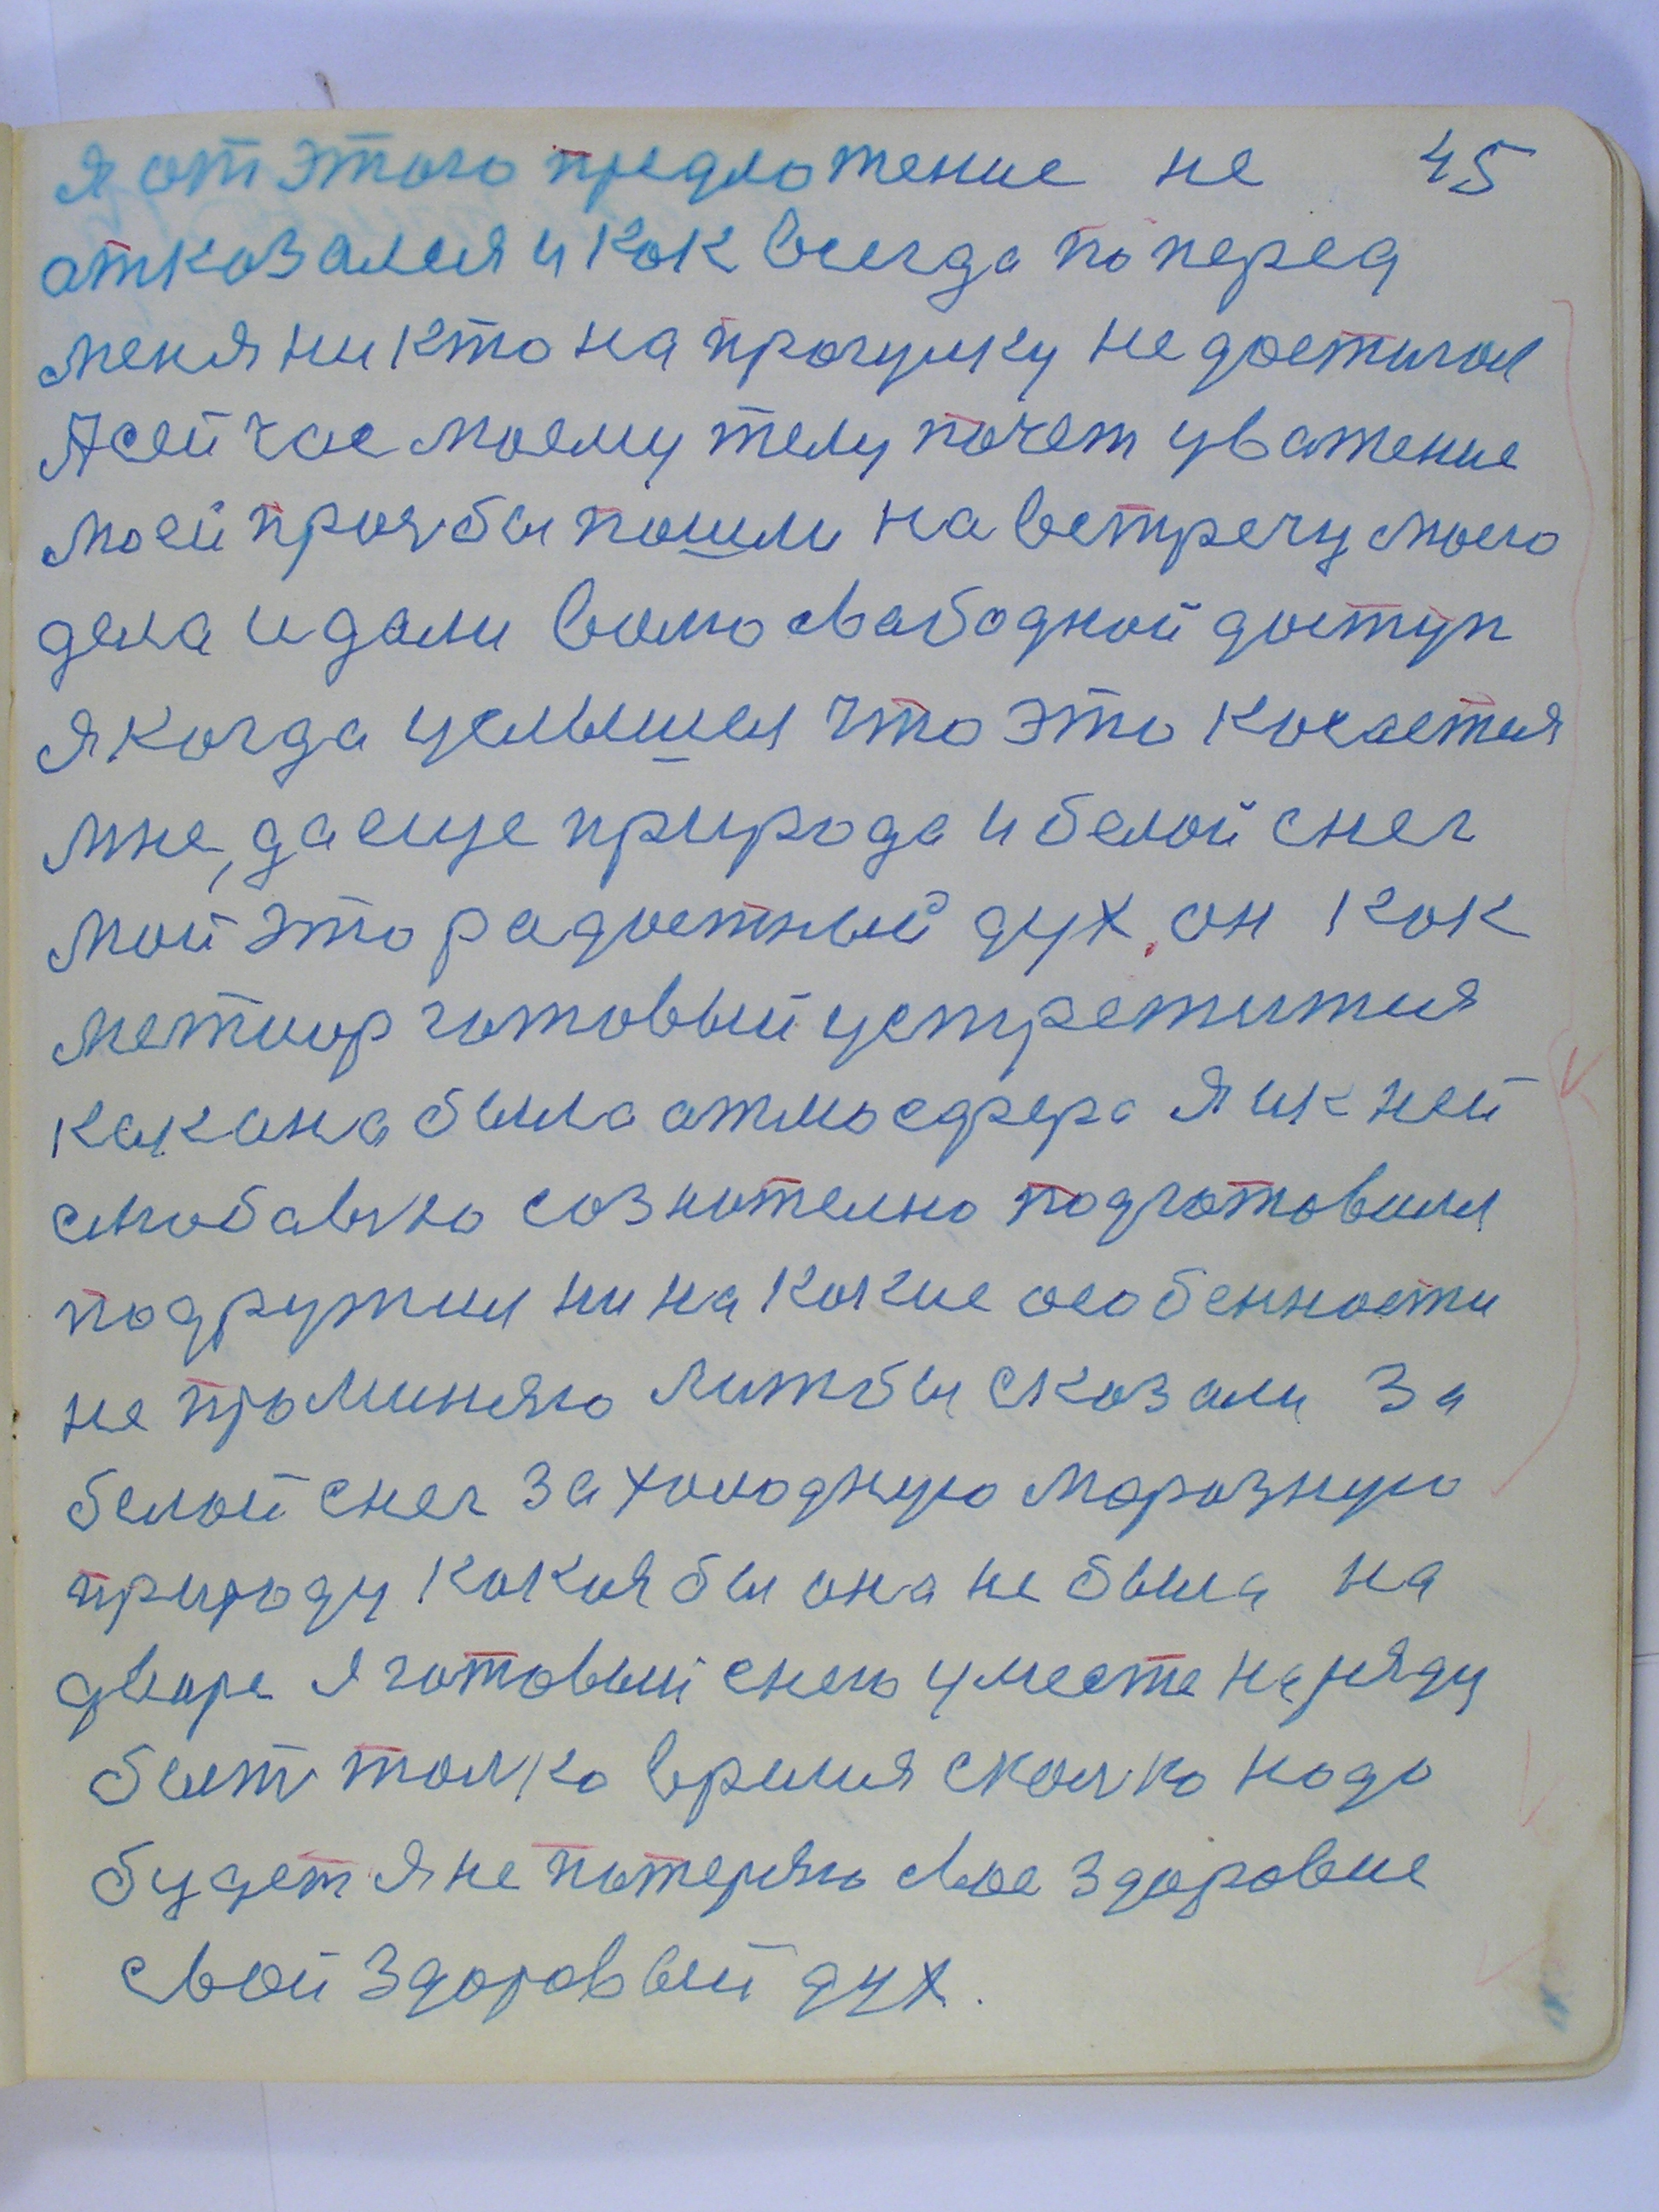 Я от этого предложение не 45
отказался и как всегда поперед
меня ни кто на прогулку не достигал
А сей час моему телу почет уважение
моей прозьбы пошли на встречу моего
дела и дали волю свабодной доступ
я когда услышел что это косается
мне, да еще природа и белой снег
мой это радостный дух, он как
метиор готовый устретится
как она была атмосфера я и к ней
слюбавъю сознотелно подготовилл
подружил ни на какие особенности
не променяю литъ бы сказали за
белой снег за холодную морозную
природу какоя бы она не была на
дворе я готовый снею уместе наряду
быть толко время сколко надо
будет я не потеряю свое здоровие
свой здоровый дух.